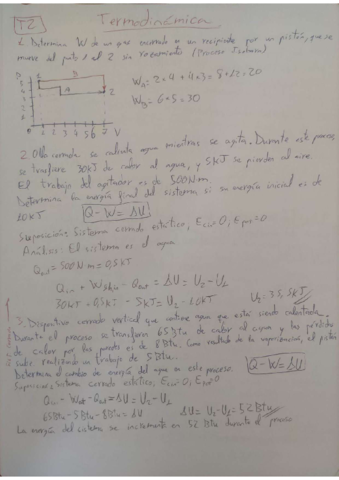 T2
Termodinámica
1. Determina W de un gas encerrado en un recipiente por un pistón, que se
mueve del punto 1 al 2 sin rozamiento
W_A = 2×4 + 4×3 = 8+12 = 20
W_B = 6×5 = 30
2. Olla cerrada se calienta agua mientras se agita. Durante este proceso
se transfiere 30kJ de calor al agua, y 5kJ se pierden al aire.
El trabajo del agitador es de 500Nm.
Determina la energía final del sistema si su energía inicial es de
10kJ Q-W=ΔU
Suposición: Sistema cerrado estático, E_c=0, E_pot=0
Análisis: El sistema es el agua
= 500Nm = 0,5kJ
Q_in + - Q_out = ΔU = U_2-U_1
30kJ + 0,5kJ - 5kJ = U_2 - 10kJ U_2 = 35,5kJ
3. Dispositivo cerrado vertical que contiene agua que está siendo calentada.
Durante el proceso se transfiere 65Btu de calor al agua y las pérdidas
de calor por las paredes es de 8Btu. Como resultado de la el pistón
sube realizando un trabajo de 5Btu.
Determina el cambio de energía del agua en este proceso. Q-W=ΔU
Suposición: Sistema cerrado estático, E_c=0, E_p=0
Q_in - W_out - Q_out = ΔU = U_2-U_1
65Btu - 5Btu - 8Btu = ΔU ΔU = U_2-U_1 = 52Btu
La energía del sistema se incrementa en 52 Btu durante el proceso